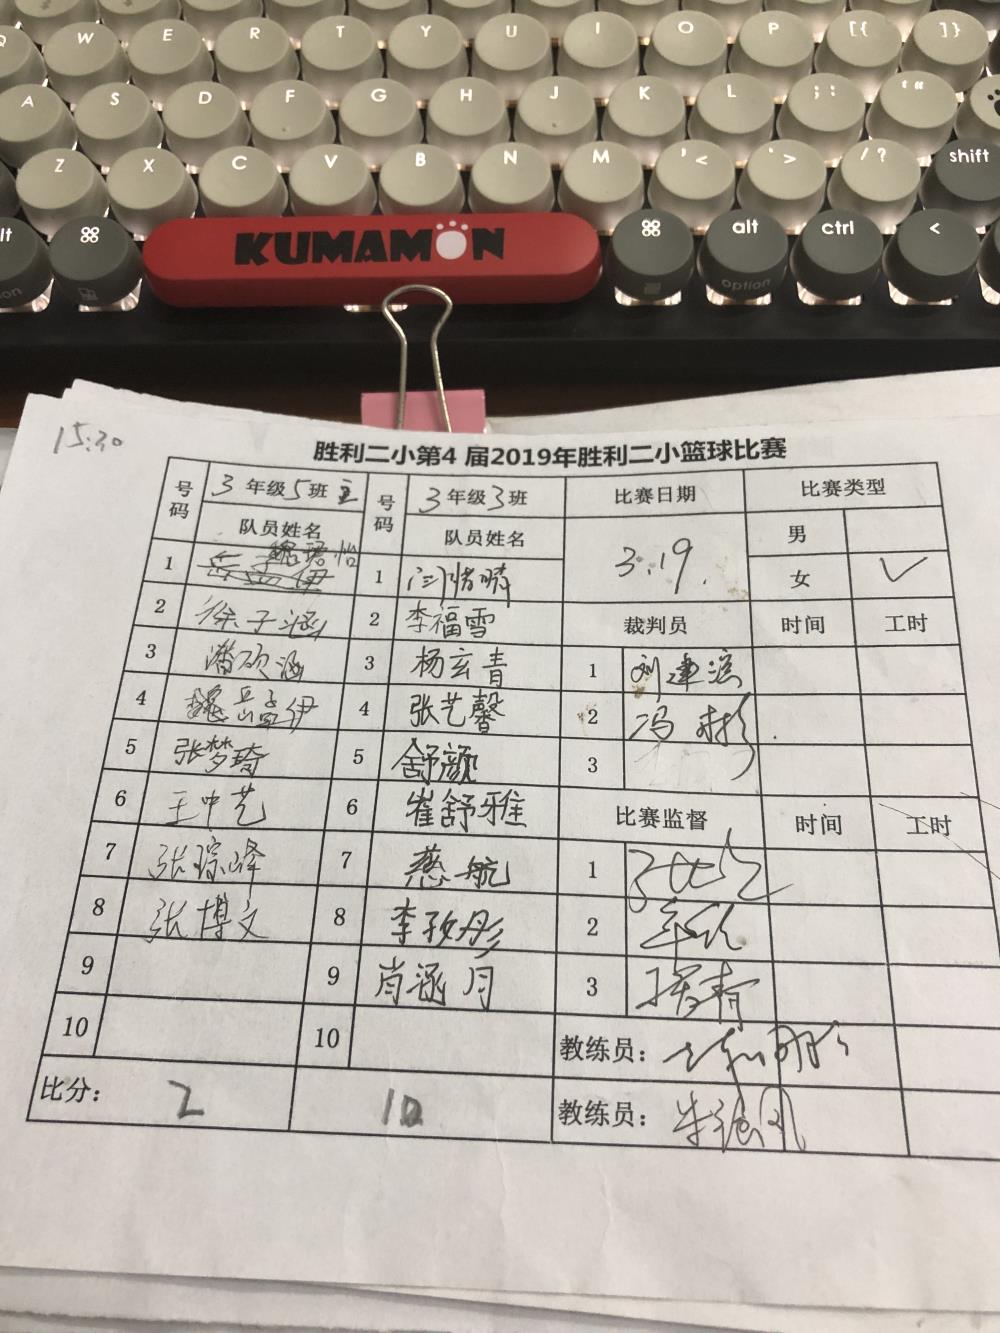 Q W E R T Y U I O P [{ ]}
A S D F G H J K L ; : ' "
Z X C V B N M ' < ' > / ? shift
⌘ KUMAMON ⌘ alt option ctrl <
15:30
胜利二小第4 届2019年胜利二小篮球比赛
号码 3 年级 5 班 主 号码 3 年级 3 班 比赛日期 比赛类型
队员姓名 队员姓名 3.19. 男
1 1 女 ✓
2 徐子涵 2 李福雪 裁判员 时间 工时
3 潘硕涵 3 杨玄青 1
4 魏孟伊 4 张艺馨 2 冯彬
5 张梦琦 5 舒颜 3
6 王中艺 6 崔舒雅 比赛监督 时间 工时
7 张琮峰 7 慈航 1
8 张博文 8 李孜彤 2
9 9 肖涵月 3
10 10 教练员:
比分: 2 10 教练员: